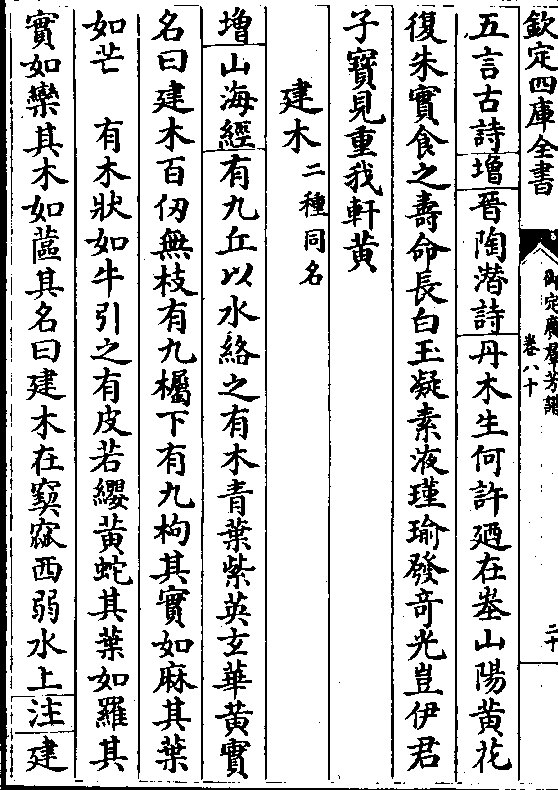 欽定四庫全書
御定廣羣芳譜
卷八十
二十
五言古詩增晉陶潛詩丹木生何許廼在峚山陽黃花
復朱實食之壽命長白玉凝素液瑾瑜發奇光豈伊君
子寶見重我軒黃
建木二種同名
增山海經有九丘以水絡之有木青葉紫英玄華黃實
名曰建木百仞無枝有九欘下有九枸其實如麻其葉
如芒　有木狀如牛引之有皮若纓黃蛇其葉如羅其
實如欒其木如蓲其名曰建木在窫窳西弱水上注建